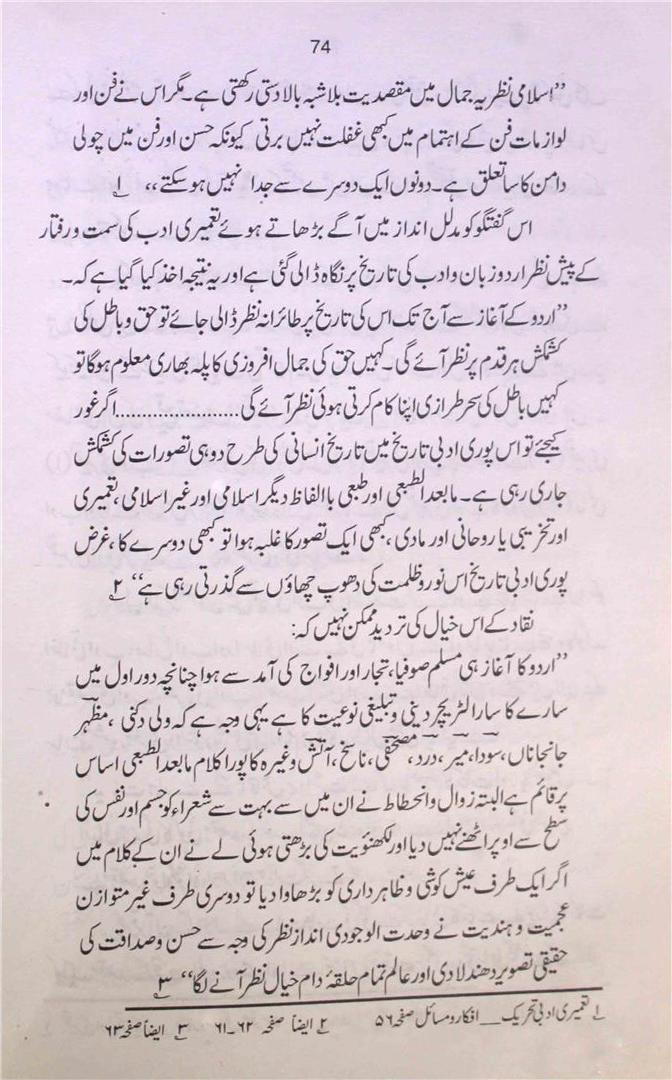 74
”اسلامی نظریہ جمال میں مقصدیت بلاشبہ بالادستی رکھتی ہے۔ مگر اس نے فن اور
لوازمات فن کے اہتمام میں کبھی غفلت نہیں برتی کیونکہ حسن اور فن میں چولی
دامن کا سا تعلق ہے۔ دونوں ایک دوسرے سے جدا نہیں ہو سکتے“ ۱
اس گفتگو کو مدلل انداز میں آگے بڑھاتے ہوئے تعمیری ادب کی سمت و رفتار
کے پیش نظر اردو زبان و ادب کی تاریخ پر نگاہ ڈالی گئی ہے اور یہ نتیجہ اخذ کیا گیا ہے کہ۔
”اردو کے آغاز سے آج تک اس کی تاریخ پر طائرانہ نظر ڈالی جائے تو حق و باطل کی
کشمکش ہر قدم پر نظر آئے گی۔ کہیں حق کی جمال افروزی کا پلہ بھاری معلوم ہوگا تو
کہیں باطل کی سحر طرازی اپنا کام کرتی ہوئی نظر آئے گی ...................... اگر غور
کیجئے تو اس پوری ادبی تاریخ میں تاریخ انسانی کی طرح دو ہی تصورات کی کشمکش
جاری رہی ہے۔ مابعد الطبعی اور طبعی باالفاظ دیگر اسلامی اور غیر اسلامی، تعمیری
اور تخریبی یا روحانی اور مادی، کبھی ایک تصور کا غلبہ ہوا تو کبھی دوسرے کا، غرض
پوری ادبی تاریخ اس نور و ظلمت کی دھوپ چھاؤں سے گذرتی رہی ہے“ ۲
نقاد کے اس خیال کی تردید ممکن نہیں کہ:
”اردو کا آغاز ہی مسلم صوفیا، تجار اور افواج کی آمد سے ہوا چنانچہ دور اول میں
سارے کا سارا لٹریچر دینی و تبلیغی نوعیت کا ہے یہی وجہ ہے کہ ولی دکنی، مظہر
جانجاناں، سودا، میر، درد، مصحفی، ناسخ، آتش وغیرہ کا پورا کلام مابعد الطبعی اساس
پر قائم ہے البتہ زوال و انحطاط نے ان میں سے بہت سے شعراء کو جسم اور نفس کی
سطح سے اوپر اٹھنے نہیں دیا اور لکھنؤیت کی بڑھتی ہوئی لے نے ان کے کلام میں
اگر ایک طرف عیش کوشی و ظاہر داری کو بڑھاوا دیا تو دوسری طرف غیر متوازن
عجمیت و ہندیت نے وحدت الوجودی انداز نظر کی وجہ سے حسن و صداقت کی
حقیقی تصویر دھندلا دی اور عالم تمام حلقۂ دام خیال نظر آنے لگا“ ۳
۱ تعمیری ادبی تحریک ــ افکار و مسائل صفحہ ۵۶ ۲ ایضاً صفحہ ۶۲-۶۱ ۳ ایضاً صفحہ ۶۳